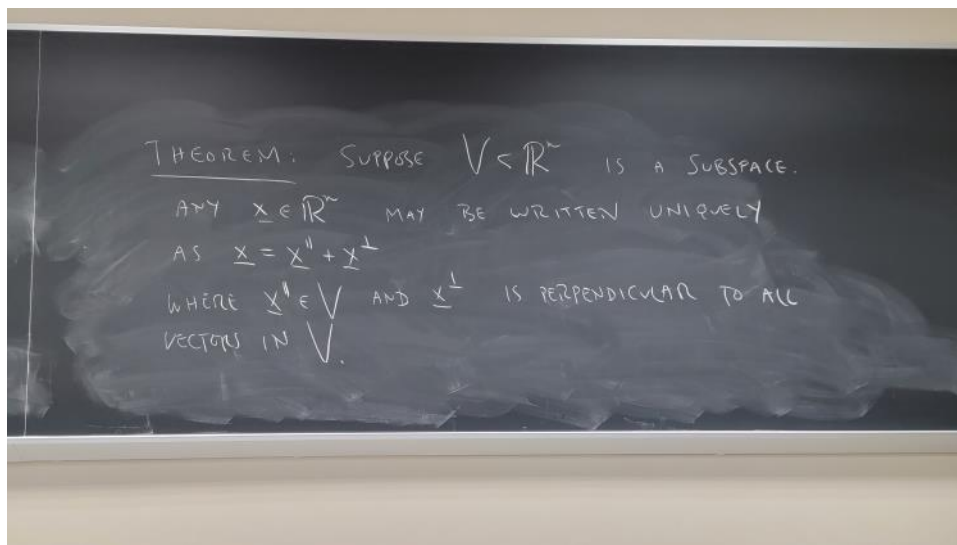 THEOREM: SUPPOSE V < ℝⁿ IS A SUBSPACE.
ANY x̲ ∈ ℝⁿ MAY BE WRITTEN UNIQUELY
AS x̲ = x̲" + x̲⊥
WHERE x̲" ∈ V AND x̲⊥ IS PERPENDICULAR TO ALL
VECTORS IN V.